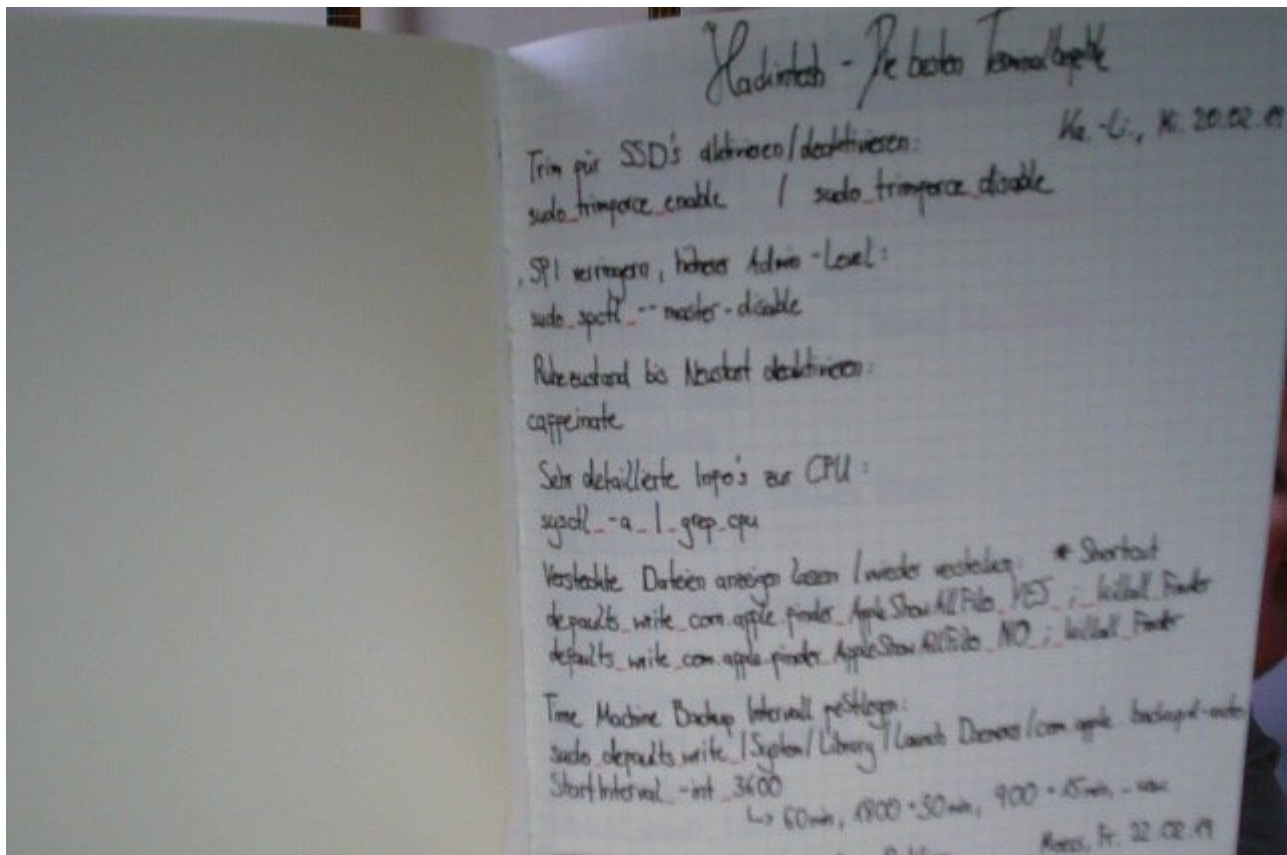 Hackintosh - Die besten Terminalbefehle
Ka.-Li., Mi. 20.02.19
Trim für SSD's aktivieren/deaktivieren:
sudo_trimforce_enable / sudo_trimforce_disable
SPI verringern, höheres Admin-Level:
sudo_spctl_--master-disable
Ruhezustand bis Neustart deaktivieren:
caffeinate
Sehr detaillierte Info's zur CPU:
sysctl_-a_|_grep_cpu
Versteckte Dateien anzeigen lassen / wieder verstecken: * Shortcut
defaults_write_com.apple.finder_AppleShowAllFiles_YES_;_killall_Finder
defaults_write_com.apple.finder_AppleShowAllFiles_NO_;_killall_Finder
Time Machine Backup Intervall festlegen:
sudo_defaults_write_/System/Library/Launch Daemons/com.apple.backupd-auto
StartInterval_-int_3600
↳ 60min, 1800 = 30min, 900 = 15min, - usw.
Fr. 22.02.19